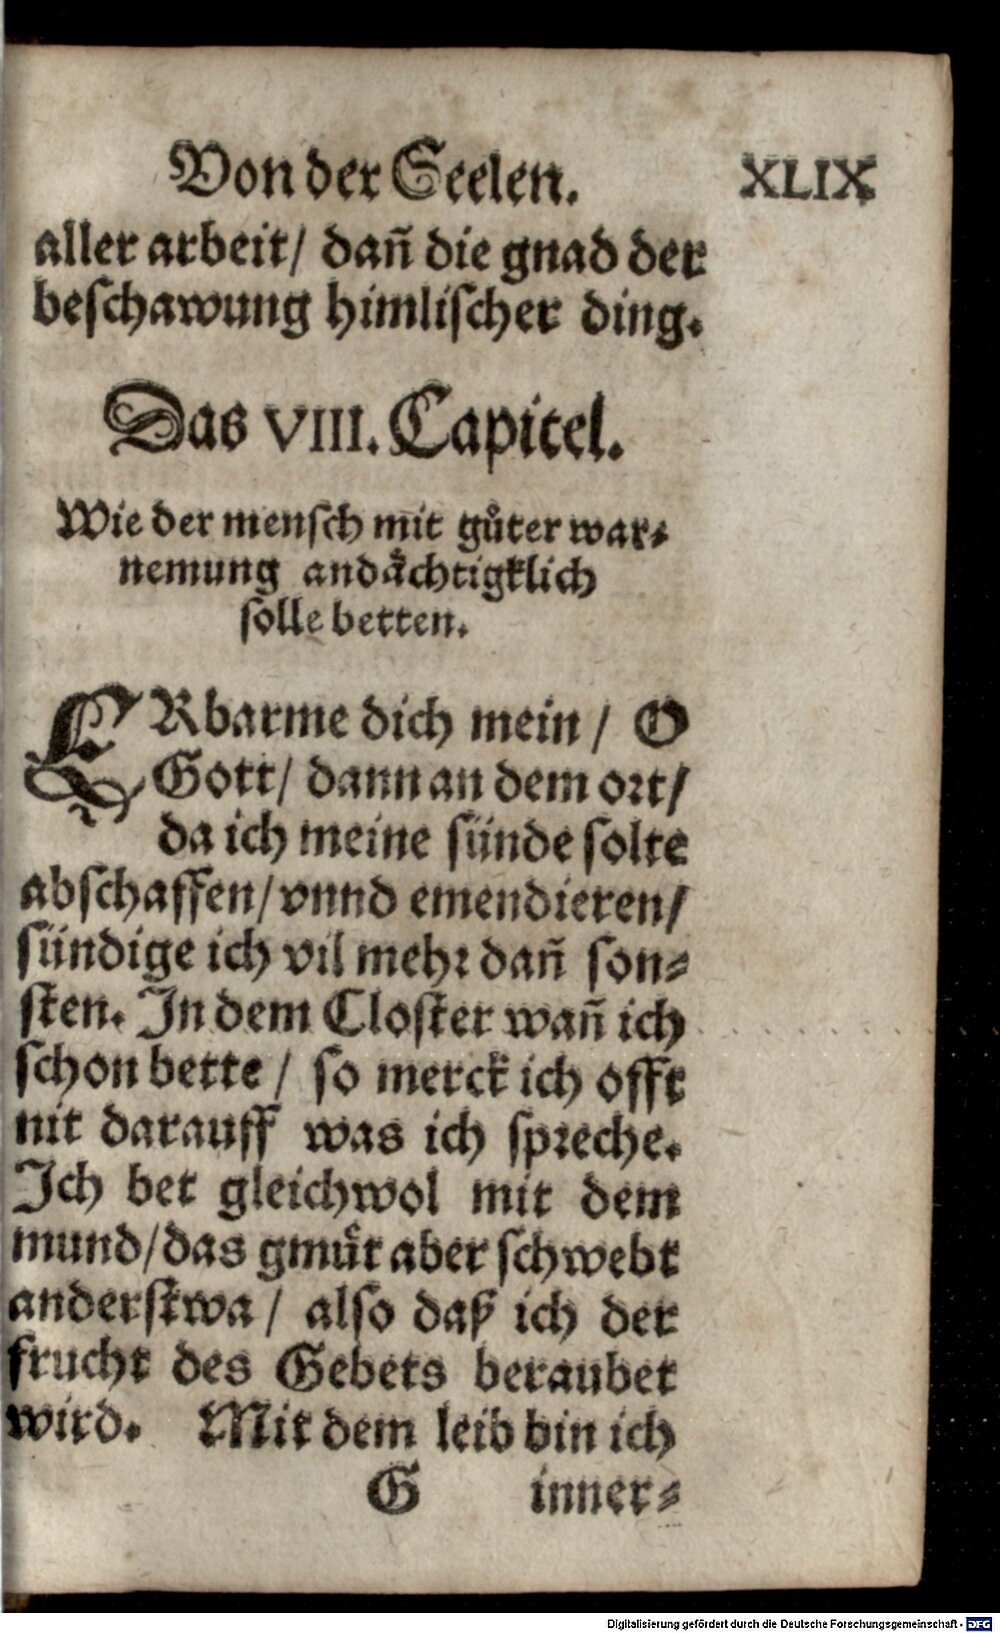 Von der Seelen. XLIX
aller arbeit/ dañ die gnad der
beschawung himlischer ding.
Das VIII. Capitel.
Wie der mensch mit gůter war⸗
nemung andåchtigklich
solle betten.
ERbarme dich mein/ O
Gott/ dann an dem ort/
da ich meine sünde solte
abschaffen/ vnnd emendieren/
sündige ich vil mehr dañ son⸗
sten. In dem Closter wañ ich
schon bette/ so merck ich offt
nit darauff was ich spreche.
Ich bet gleichwol mit dem
mund/ das gmüt aber schwebt
anderstwa/ also daß ich der
frucht des Gebets beraubet
wird. Mit dem leib bin ich
G inner⸗
Digitalisierung gefördert durch die Deutsche Forschungsgemeinschaft - DFG